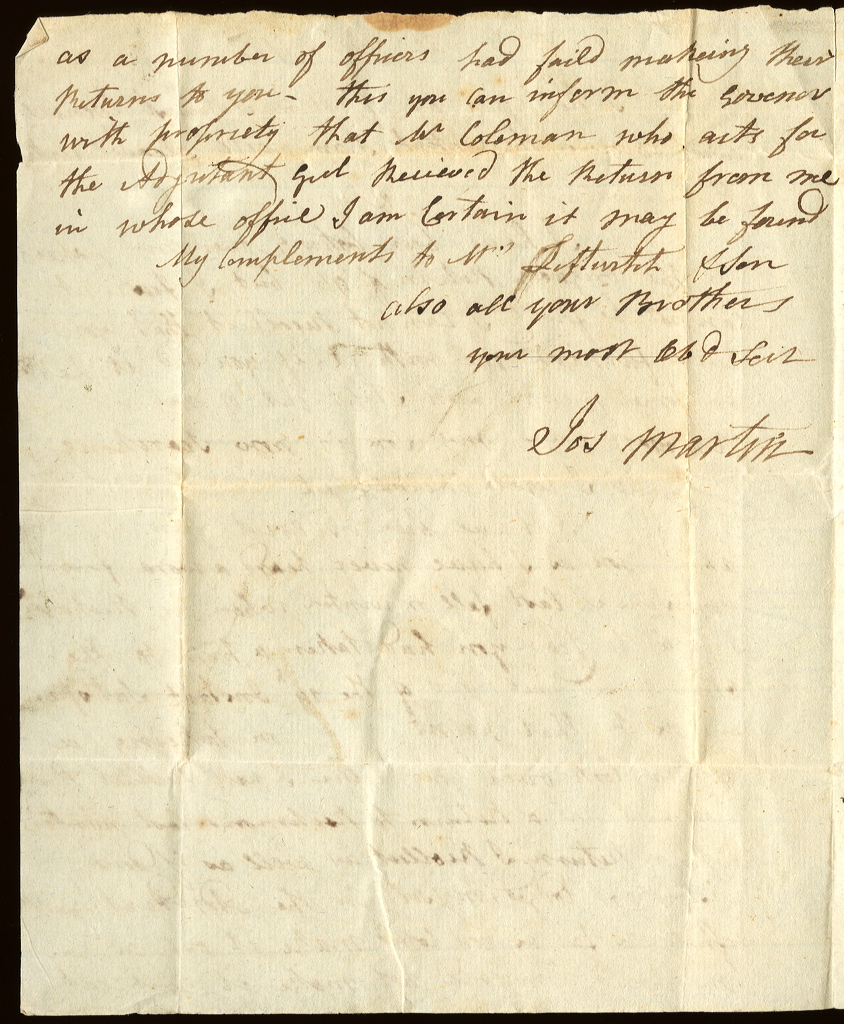 as a number of officers had faild makeing their
Returns to you - this you can inform the Govenor
with propriety that Mr Coleman who acts for
the Adjutant Genl Recieved the Return from me
in whose office I am Certain it may be found
My Complements to Mrs & Son
also all your Brothers
your most Obd Sert
Jos Martin